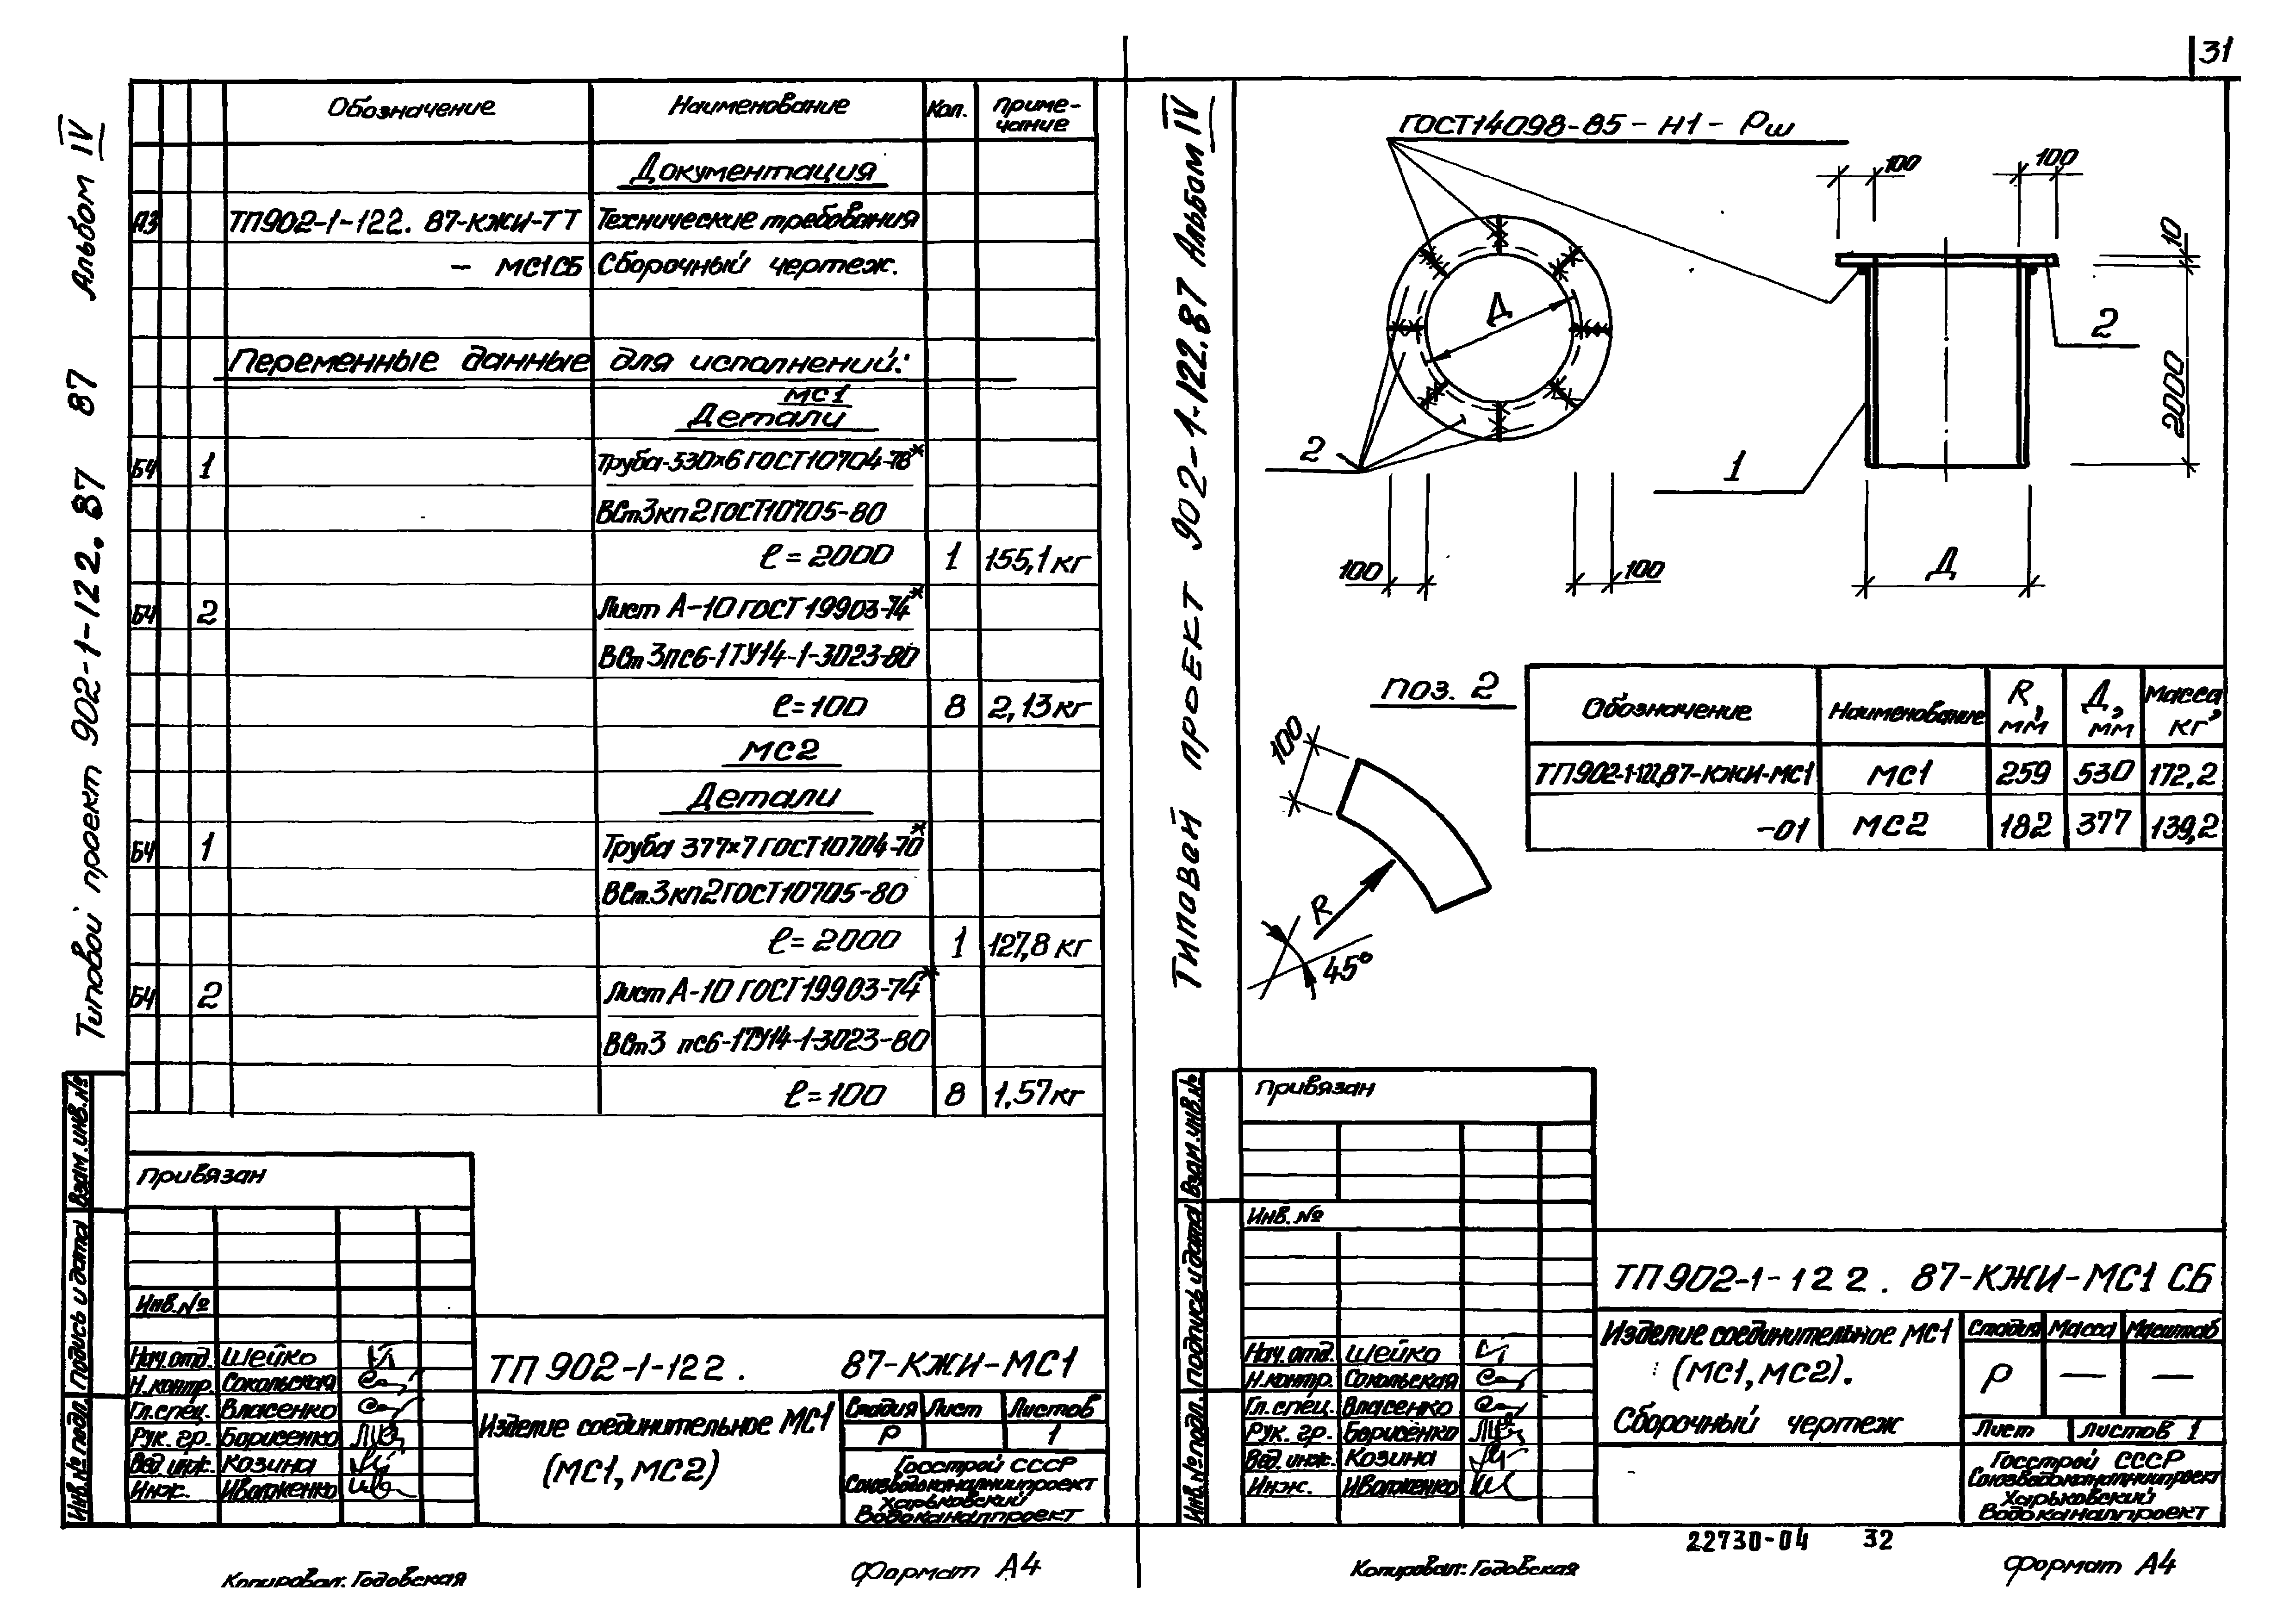 31
Типовой проект 902-1-122.87 87 Альбом IV
Обозначение Наименование Кол. Приме-
чание
Документация
А3 ТП902-1-122. 87-КЖИ-ТТ Технические требования
- МС1СБ Сборочный чертеж.
Переменные данные для исполнений:
МС1
Детали
БЧ 1 Труба-530×6 ГОСТ10704-76*
ВСт3кп2ГОСТ10705-80
ℓ=2000 1 155,1кг
БЧ 2 Лист А-10 ГОСТ 19903-74*
ВСт3пс6-1ТУ14-1-3023-80
ℓ=100 8 2,13кг
МС2
Детали
БЧ 1 Труба 377×7 ГОСТ10704-70*
ВСт.3кп2ГОСТ10705-80
ℓ=2000 1 127,8 кг
БЧ 2 Лист А-10 ГОСТ19903-74*
ВСт3 пс6-1ТУ14-1-3023-80
ℓ=100 8 1.57кг
Инв.№подл. Подпись и дата Взам.инв.№
Привязан
Инв.№
Нач.отд. Шейко
Н.контр. Сокольская
Гл.спец. Власенко
Рук. гр. Борисенко
Вед.инж. Козина
Инж.
ТП 902-1-122. 87-КЖИ-МС1
Изделие соединительное МС1
(МС1, МС2)
Стадия Лист Листов
Р 1
Госстрой СССР
Союзводоканалниипроект
Харьковский
Водоканалпроект
Копировал: Годовская Формат А4
Типовой проект 902-1-122.87 Альбом IV
ГОСТ14098-85-Н1-Рш
100 100
10
Д
2
2000
2
1
100 100
Д
поз. 2
100
R
45°
Обозначение Наименование R, мм Д, мм Масса, кг
ТП902-1-122.87-КЖИ-МС1 МС1 259 530 172,2
-01 МС2 182 377 139,2
Инв.№подл. Подпись и дата Взам.инв.№
Привязан
Инв. №
Нач.отд. Шейко
Н.контр. Сокольская
Гл.спец. Власенко
Рук. гр. Борисенко
Вед.инж. Козина
Инж.
ТП902-1-122. 87-КЖИ-МС1 СБ
Изделие соединительное МС1
(МС1, МС2).
Сборочный чертеж
Стадия Масса Масштаб
Р — —
Лист Листов 1
Госстрой СССР
Союзводоканалниипроект
Харьковский
Водоканалпроект
22730-04 32
Копировал: Годовская Формат А4